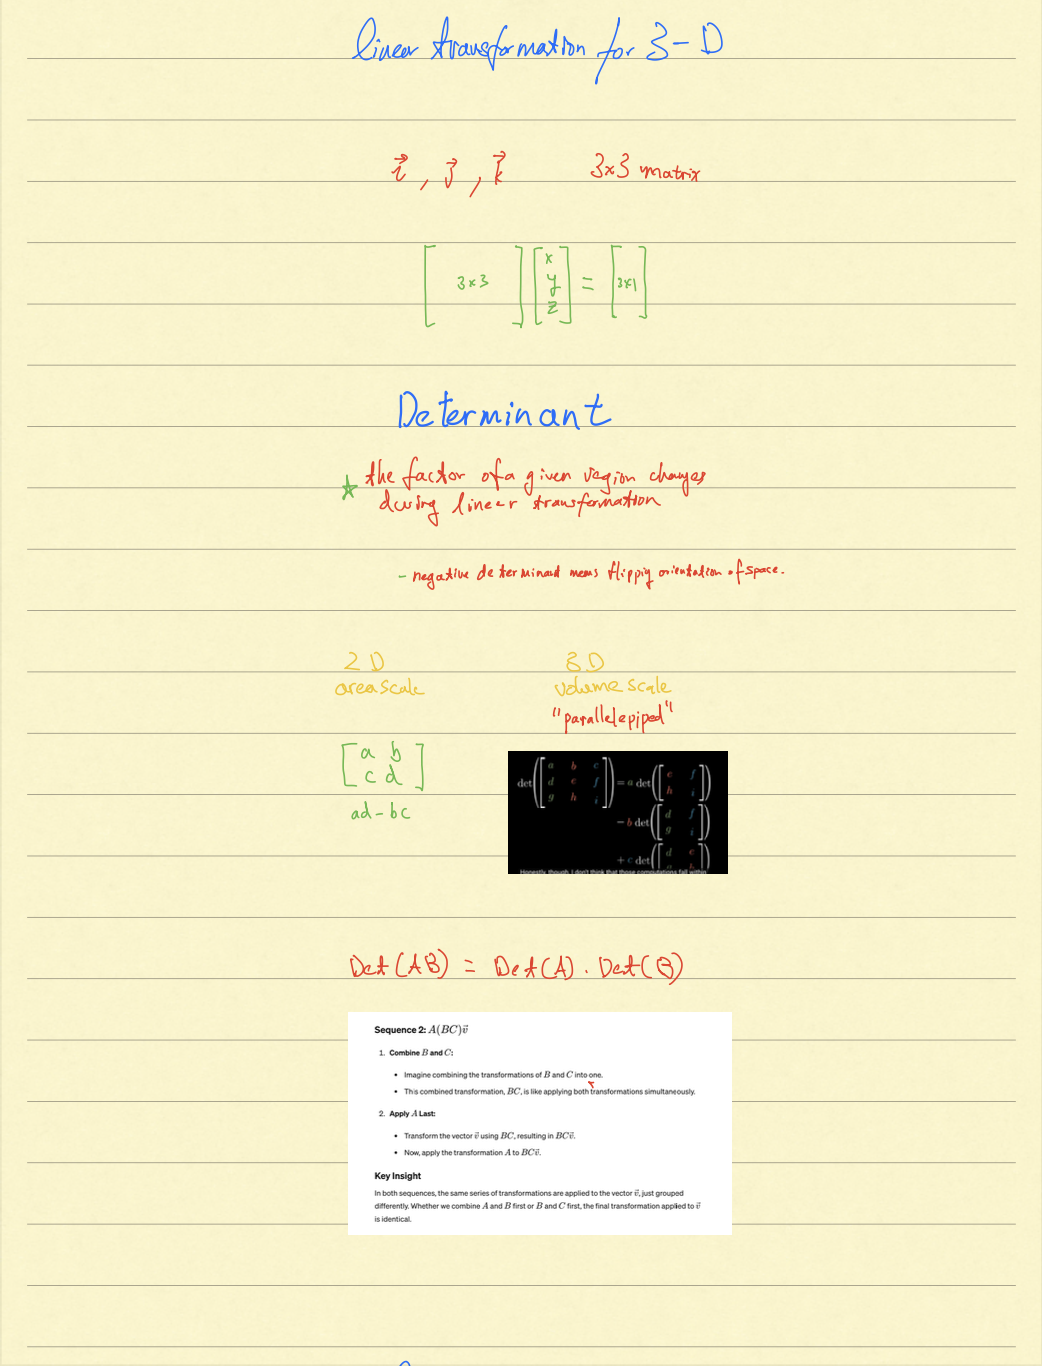 linear transformation for 3-D
i⃗ , j⃗ , k⃗ 3×3 matrix
[ 3×3 ] [ x y z ] = [ 3×1 ]
Determinant
☆ the factor of a given region changes
during linear transformation
- negative determinant means flippig orientation of space.
2D 3D
area scale volume scale
"parallelepiped"
[ a b
c d ]
ad - bc
det([ a b c
d e f
g h i ]) = a det([ e f
h i ])
- b det([ d f
g i ])
+ c det([ d e
Honestly, though, I don't think that those computations fall within
Det(AB) = Det(A) . Det(B)
Sequence 2: A(BC)v⃗
1. Combine B and C:
• Imagine combining the transformations of B and C into one.
• This combined transformation, BC, is like applying both transformations simultaneously.
2. Apply A Last:
• Transform the vector v⃗ using BC, resulting in BCv⃗.
• Now, apply the transformation A to BCv⃗.
Key Insight
In both sequences, the same series of transformations are applied to the vector v⃗, just grouped
differently. Whether we combine A and B first or B and C first, the final transformation applied to v⃗
is identical.